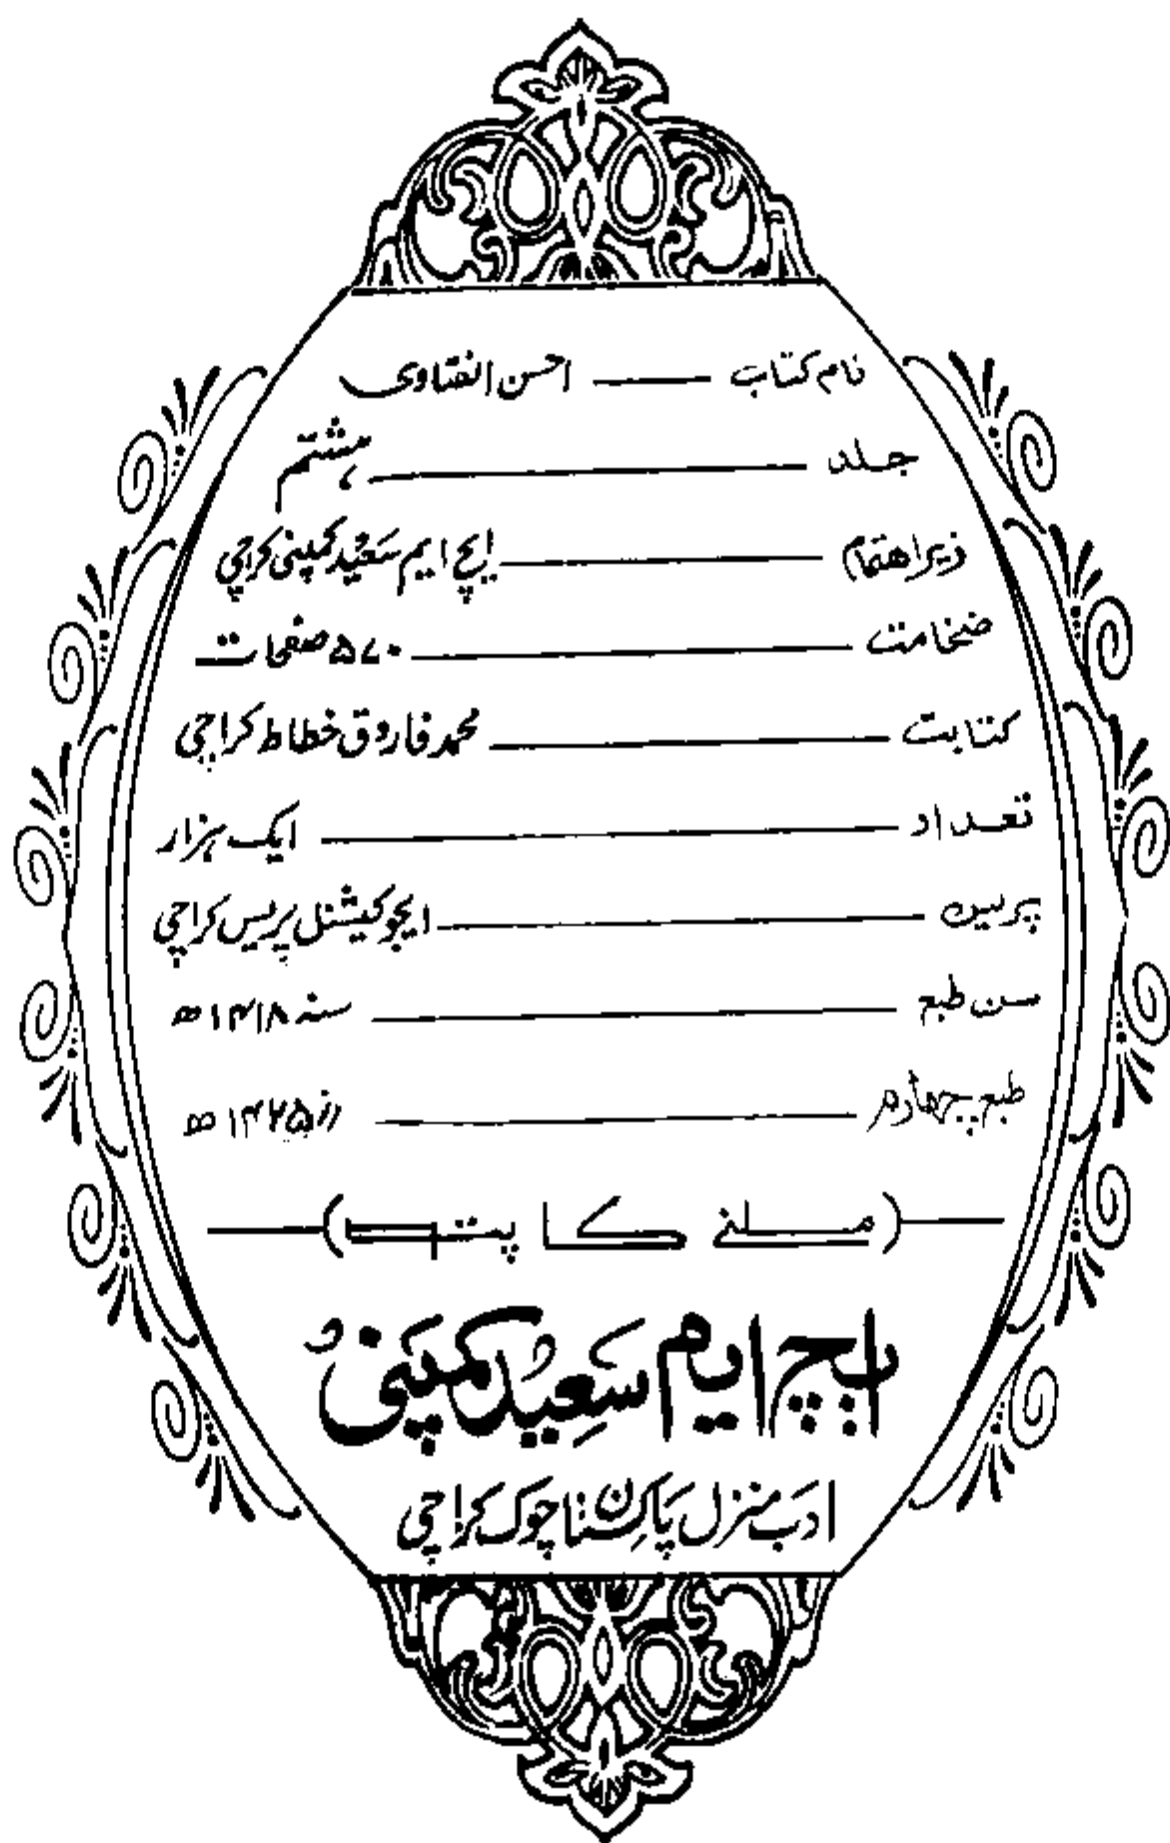 نام کتاب ــــ احسن الفتاوی
جلد ــــ ہشتم
زیر اهتمام ــــ ایچ ایم سعید کمپنی کراچی
ضخامت ــــ ۵۷۰ صفحات
کتابت ــــ محمد فاروق خطاط کراچی
تعداد ــــ ایک ہزار
پریس ــــ ایجوکیشنل پریس کراچی
سن طبع ــــ سنہ ۱۴۱۸ ھ
طبع چهارم ــــ ۱۴۲۵ ھ
(ملنے کا پتہ)
ایچ ایم سعید کمپنی
ادب منزل پاکستان چوک کراچی